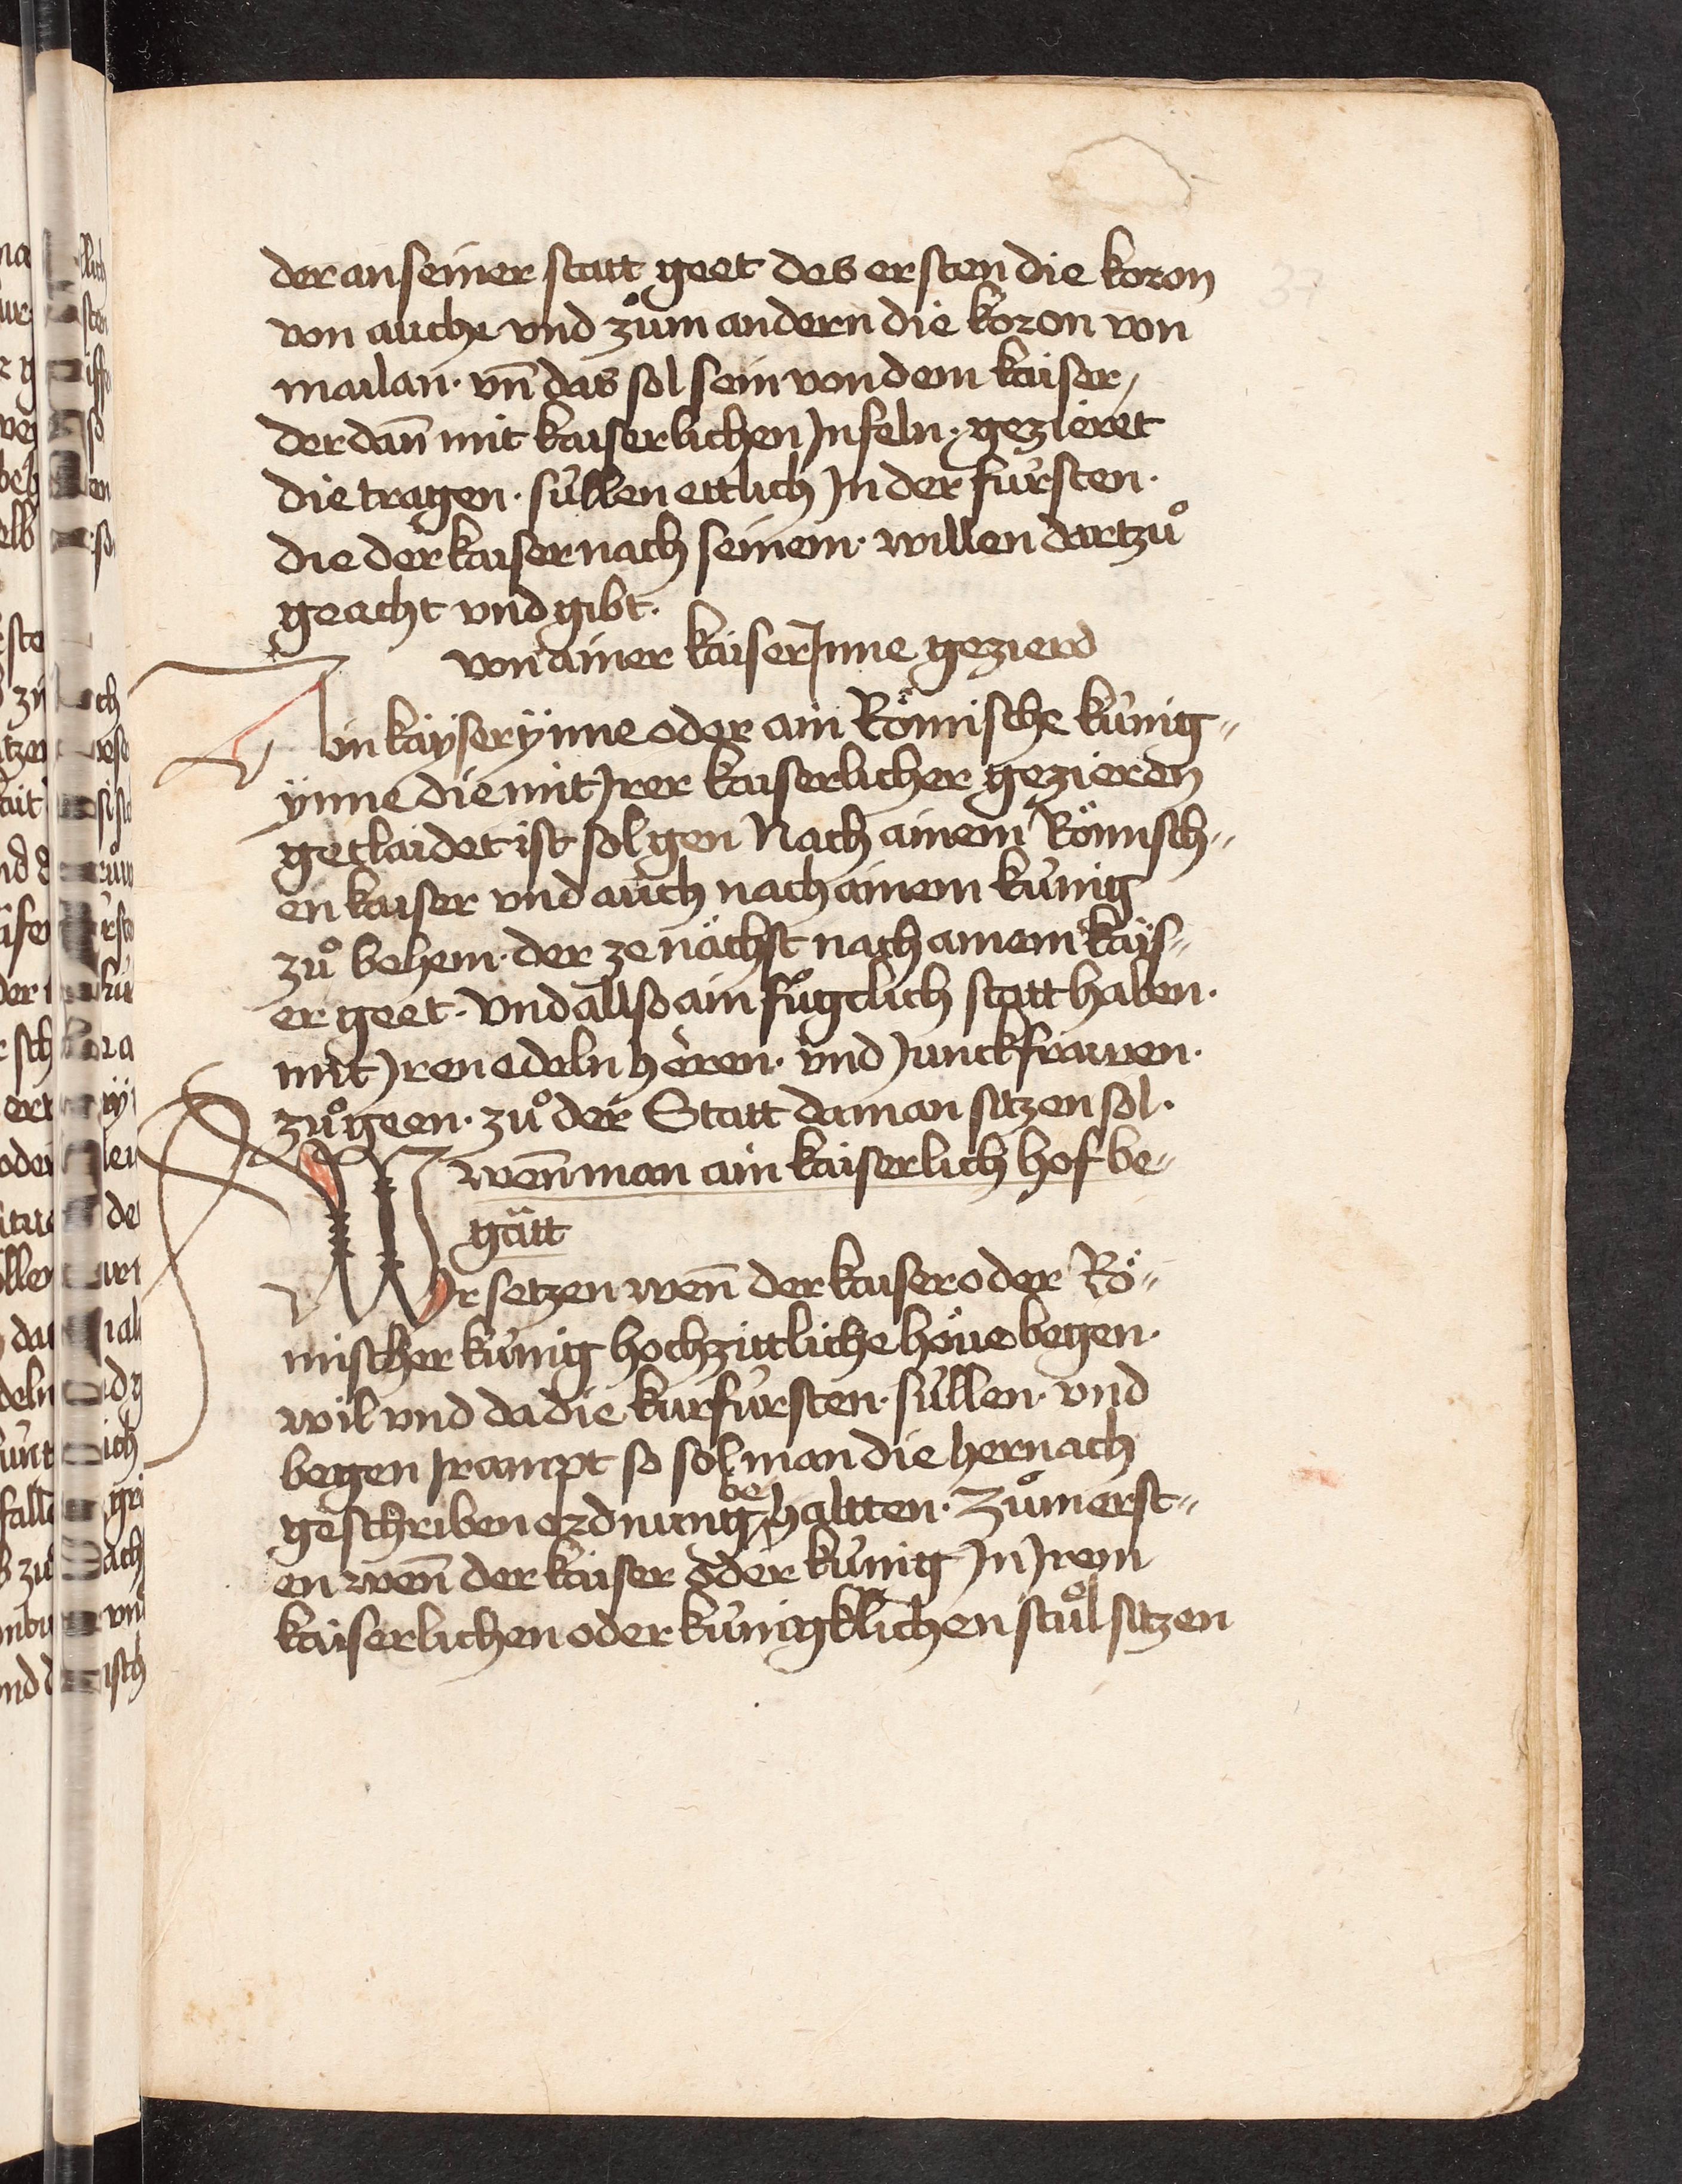 37
der an seiner statt geet des ersten die koron
von auche vnd zům andern die koron von
mailan · vn̄ das sol sein von dem kaiser /
der dan̄ mit kaiserlichen Jnfeln · gezieret
die tragen · süllen ettlich Jn der fürsten ·
die der kaiser nach seinem · willen dartzů
geacht vnd gibt ·
von ainer kaiserJnne gezierd
Ain käyserÿnne oder ain Römische künig„
ÿnne die mit Jrer kaiserlicher gezierden
geclaidet ist sol gen Nach ainem Römisch„
en kaiser vnd auch nach ainem künig
zů behem · der ze nächst nach ainem käÿs„
er geet · vnd allso ain fůgclich statt haben ·
mit Jren edeln heren · vnd Junckfrawen ·
zů geen · zů der Statt da man sitzen sol ·
wen̄ man ain kaiserlich hof be„
gätt
Wir setzen wen̄ der kaiser oder Rö„
mischer künig hochzittliche höue began ·
wil vnd da die kurfürsten · süllen · vnd
begen Jr ampt so sol man die hernach
geschriben ordnung behaltten · Zůmerst„
en wen̄ der kaiser oder künig Jn Jrem
kaiserlichen oder künigklichen stůl sitzen